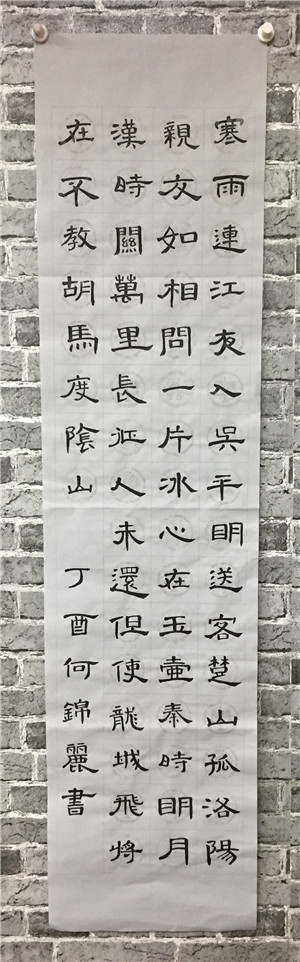 寒雨連江夜入吳平明送客楚山孤洛陽
親友如相問一片冰心在玉壺秦時明月
漢時關萬里長征人未還但使龍城飛將
在不教胡馬度陰山 丁酉何錦麗書